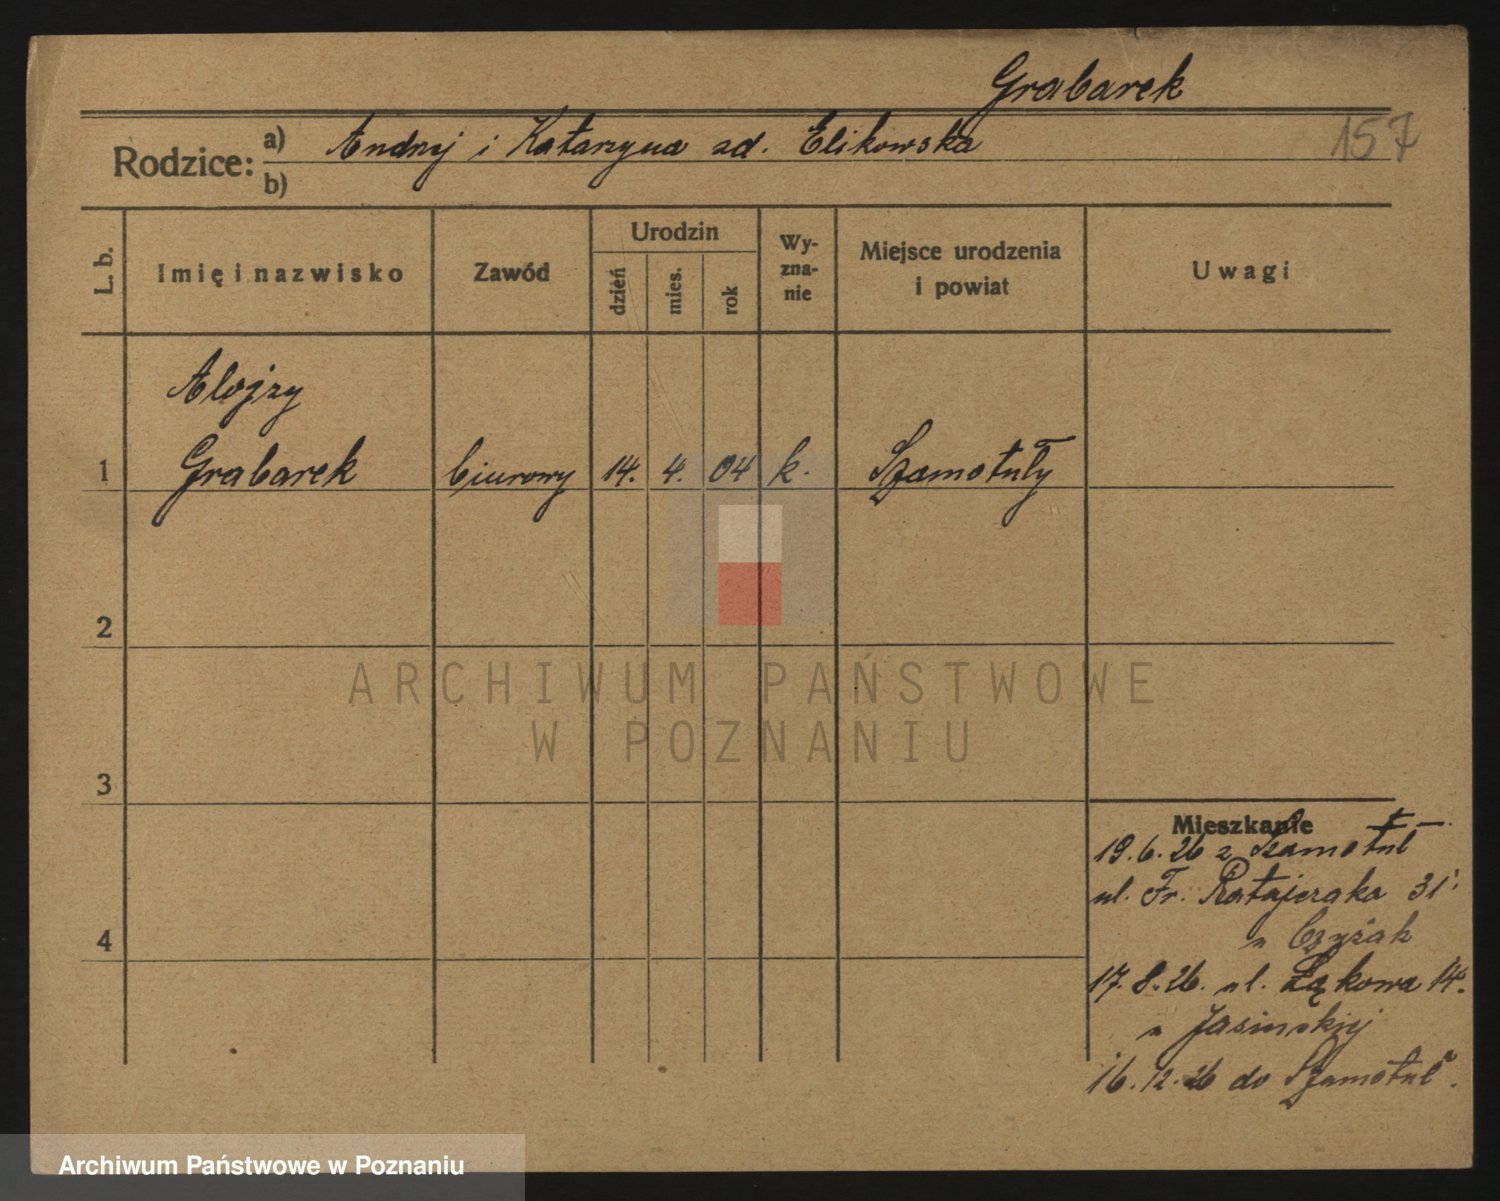 Grabarek
157
Rodzice: a) Andrzej i Katarzyna zd. Elikowska
b)
L. b. Imię i nazwisko Zawód Urodzin dzień mies. rok Wy-zna-nie Miejsce urodzenia i powiat Uwagi
Alojzy
1 Grabarek biurowy 14. 4. 04 k. Szamotuły
2
ARCHIWUM PAŃSTWOWE
W POZNANIU
3
Mieszkanie
19.6.26 z Szamotuł
ul. Fr. Ratajczaka 31
4
u Czyżak
17.8.26. ul. Łąkowa 14.
u Jasińskiej
16.12.26 do Szamotuł.
Archiwum Państwowe w Poznaniu